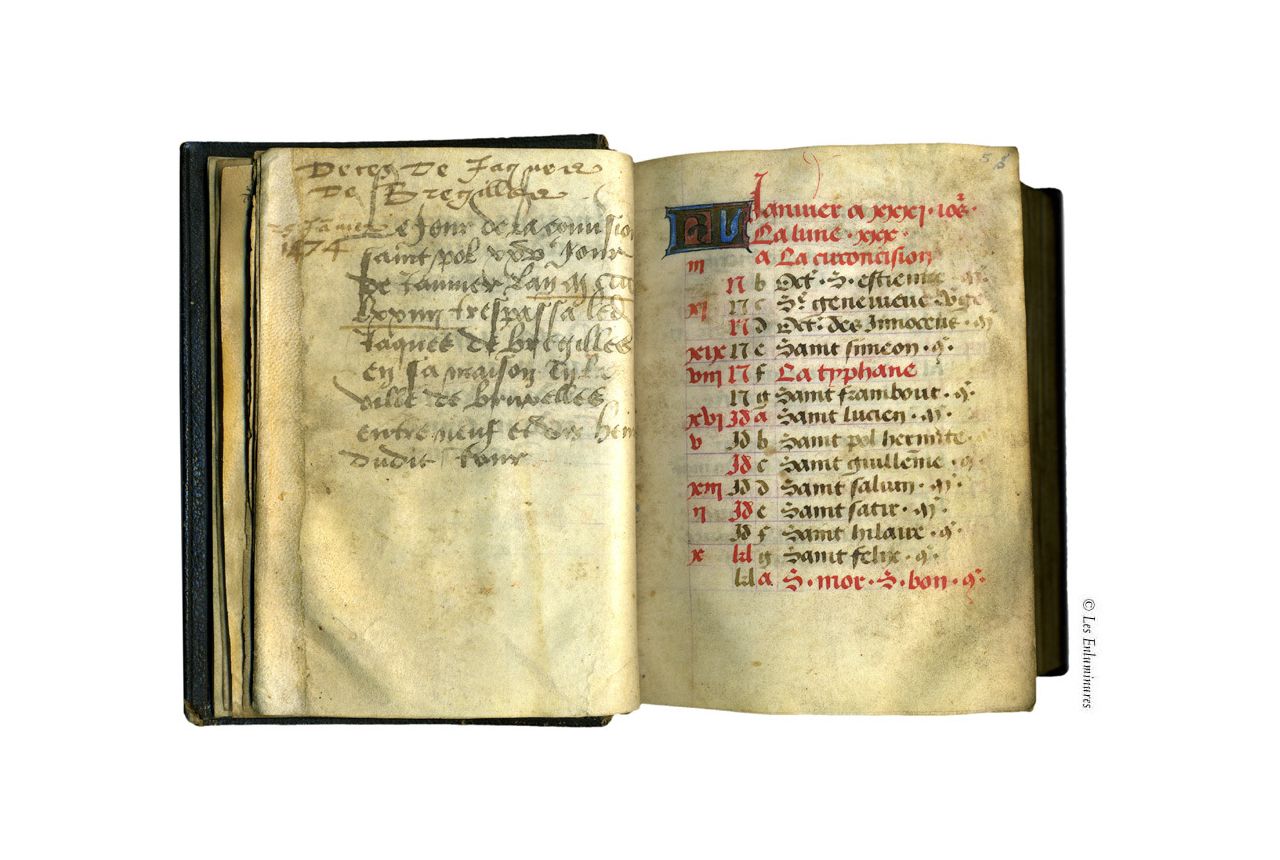 Deces De Jaques
De Bregilles
25 Januier
1474
Le Jour de la conuersion
saint pol xxv Jour
de Januier Lan m cccc
lxxiiii trespassa led
Jaques de bregilles
en sa maison
ville de bruxelles
entre neuf et dix heur
dudit Jour
KL
Januier a xxxi · iors ·
La lune · xxx ·
iii a La circoncision
N b Oct · S · estienne · m ·
xi N c Ste geneuieue vge
N d Oct · des Innocens · m
xix N e Saint simeon · m ·
viii N f La typhane
N g Saint frambout · m ·
xvi Jd a Saint lucien · m ·
v Jd b Saint pol hermite ·
Jd c Saint guillême · m ·
xiii Jd d Saint saluin · m ·
ii Jd e Saint satir · m ·
Jd f Saint hilaire · m ·
x kl g Saint felix · m ·
kl a S · mor · S · bon · m ·
© Les Enluminures